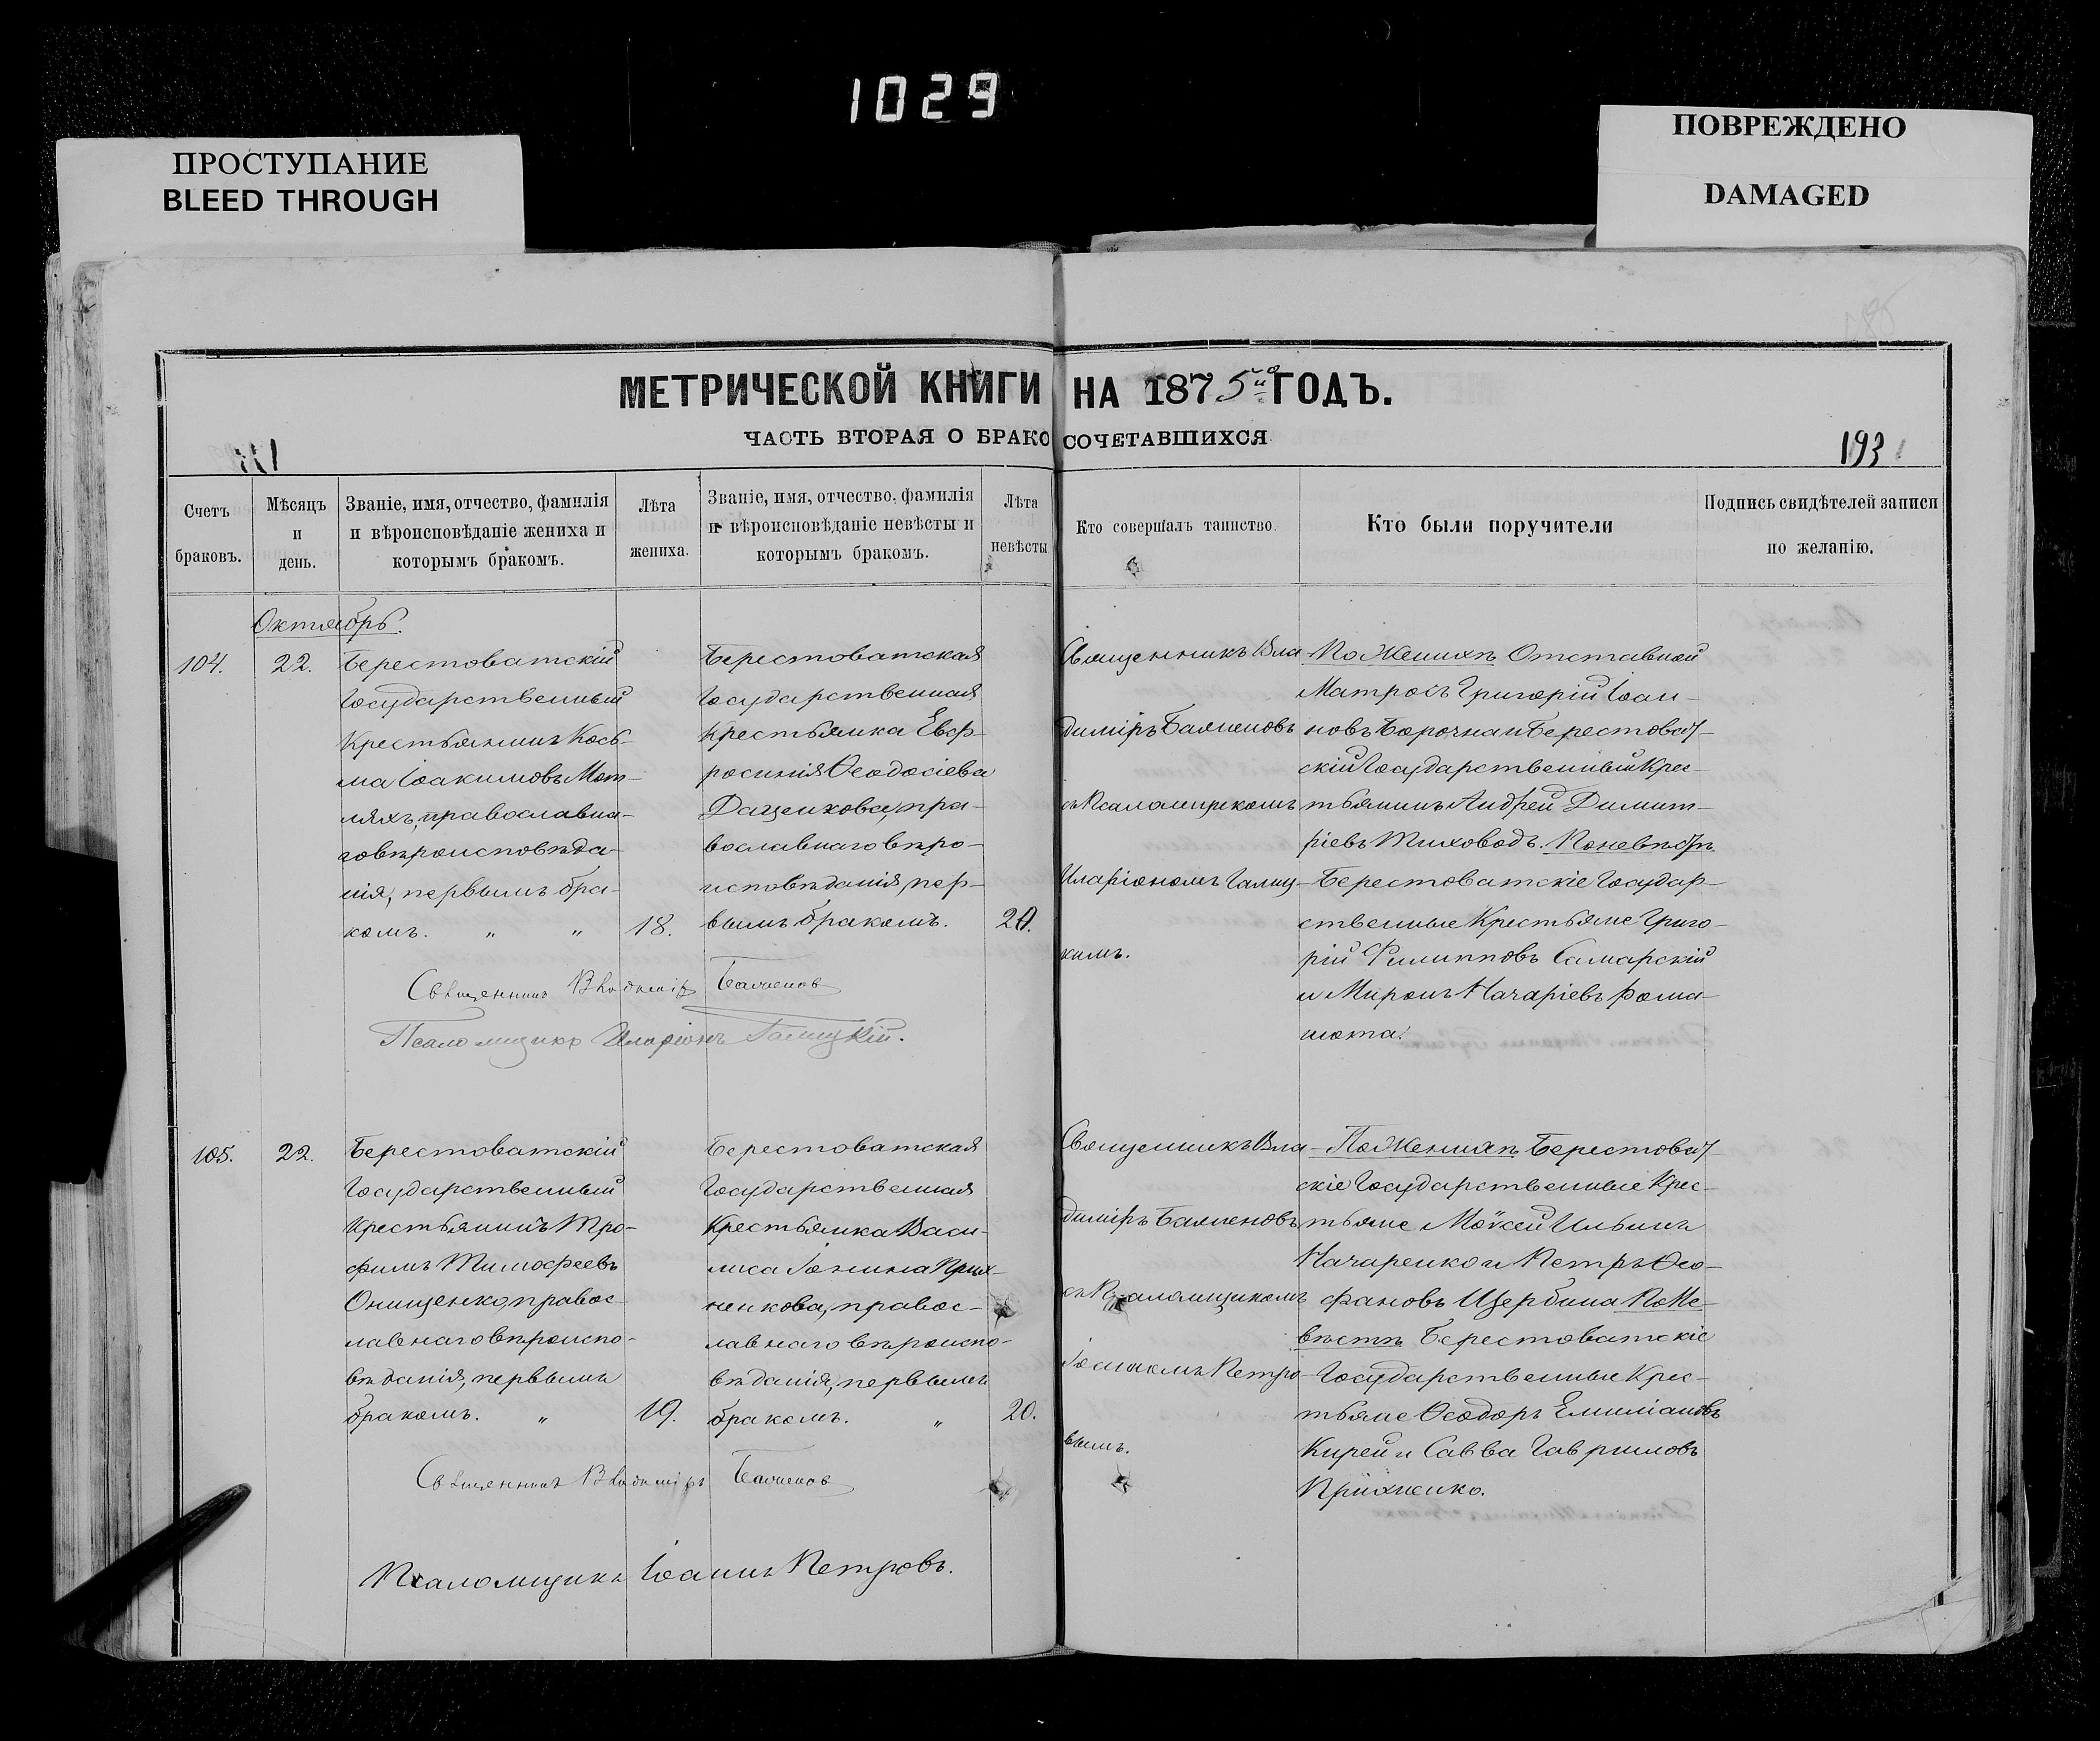 1029
ПРОСТУПАНИЕ
BLEED THROUGH
ПОВРЕЖДЕНО
DAMAGED
МЕТРИЧЕСКОЙ КНИГИ НА 1875й ГОДЪ.
ЧАСТЬ ВТОРАЯ О БРАКОСОЧЕТАВШИХСЯ
193
Счетъ
браковъ.
Мѣсяцъ
и
день.
Званіе, имя, отчество, фамилія
и вѣроисповѣданіе жениха и
которымъ бракомъ.
Лѣта
жениха.
Званіе, имя, отчество, фамилія
и вѣроисповѣданіе невѣсты и
которымъ бракомъ.
Лѣта
невѣсты
Кто совершалъ таинство.
Кто были поручители
Подпись свидѣтелей записи
по желанію.
Октябрь.
104.
22.
Берестоватскій
Государственный
Крестьянинъ Кось-
ма Іоакимовъ Мет-
ляхъ, православна-
го вѣроисповѣда-
нія, первымъ бра-
комъ. " "
18.
Берестоватская
Государственная
Крестьянка Евф-
росинія Ѳеодосіева
Даценкова, пра-
вославнаго вѣро-
исповѣданія, пер-
вымъ бракомъ.
20.
Священникъ Вла-
диміръ Баяненовъ
съ Псаломщикомъ
Иларіономъ Галиц-
кимъ.
По Женихѣ Отставной
Матросъ Григорій Іоан-
новъ Борочна и Берестоват-
скій Государственный Крес-
тьянинъ Андрей Димит-
ріевъ Тиховодъ. По невѣстѣ
Берестоватскіе Государ-
ственные Крестьяне Григо-
рій Филипповъ Самарскій
и Миронъ Назаріевъ Фома-
нота.
Священникъ Владиміръ Баяненов
Псаломщикъ Иларіонъ Галицкій.
105.
22.
Берестоватскій
Государственный
Крестьянинъ Тро-
фимъ Тимофеевъ
Онищенко, правос-
лавнаго вѣроиспо-
вѣданія, первымъ
бракомъ. "
19.
Берестоватская
Государственная
Крестьянка Васи-
лиса Іонина Прих-
ненкова, правос-
лавнаго вѣроиспо-
вѣданія, первымъ
бракомъ. "
20.
Священникъ Вла-
диміръ Баяненовъ
съ Псаломщикомъ
Іоанномъ Петро-
вымъ.
По Женихѣ Берестоват-
скіе Государственные Крес-
тьяне Мойсей Ильинъ
Назаренко и Петръ Ѳео-
фановъ Щербина По Не-
вѣстѣ Берестоватскіе
Государственные Крес-
тьяне Ѳеодоръ Емиліановъ
Кирей и Савва Гавриловъ
Прихненко.
Священникъ Владиміръ Баяненов
Псаломщикъ Іоаннъ Петровъ.